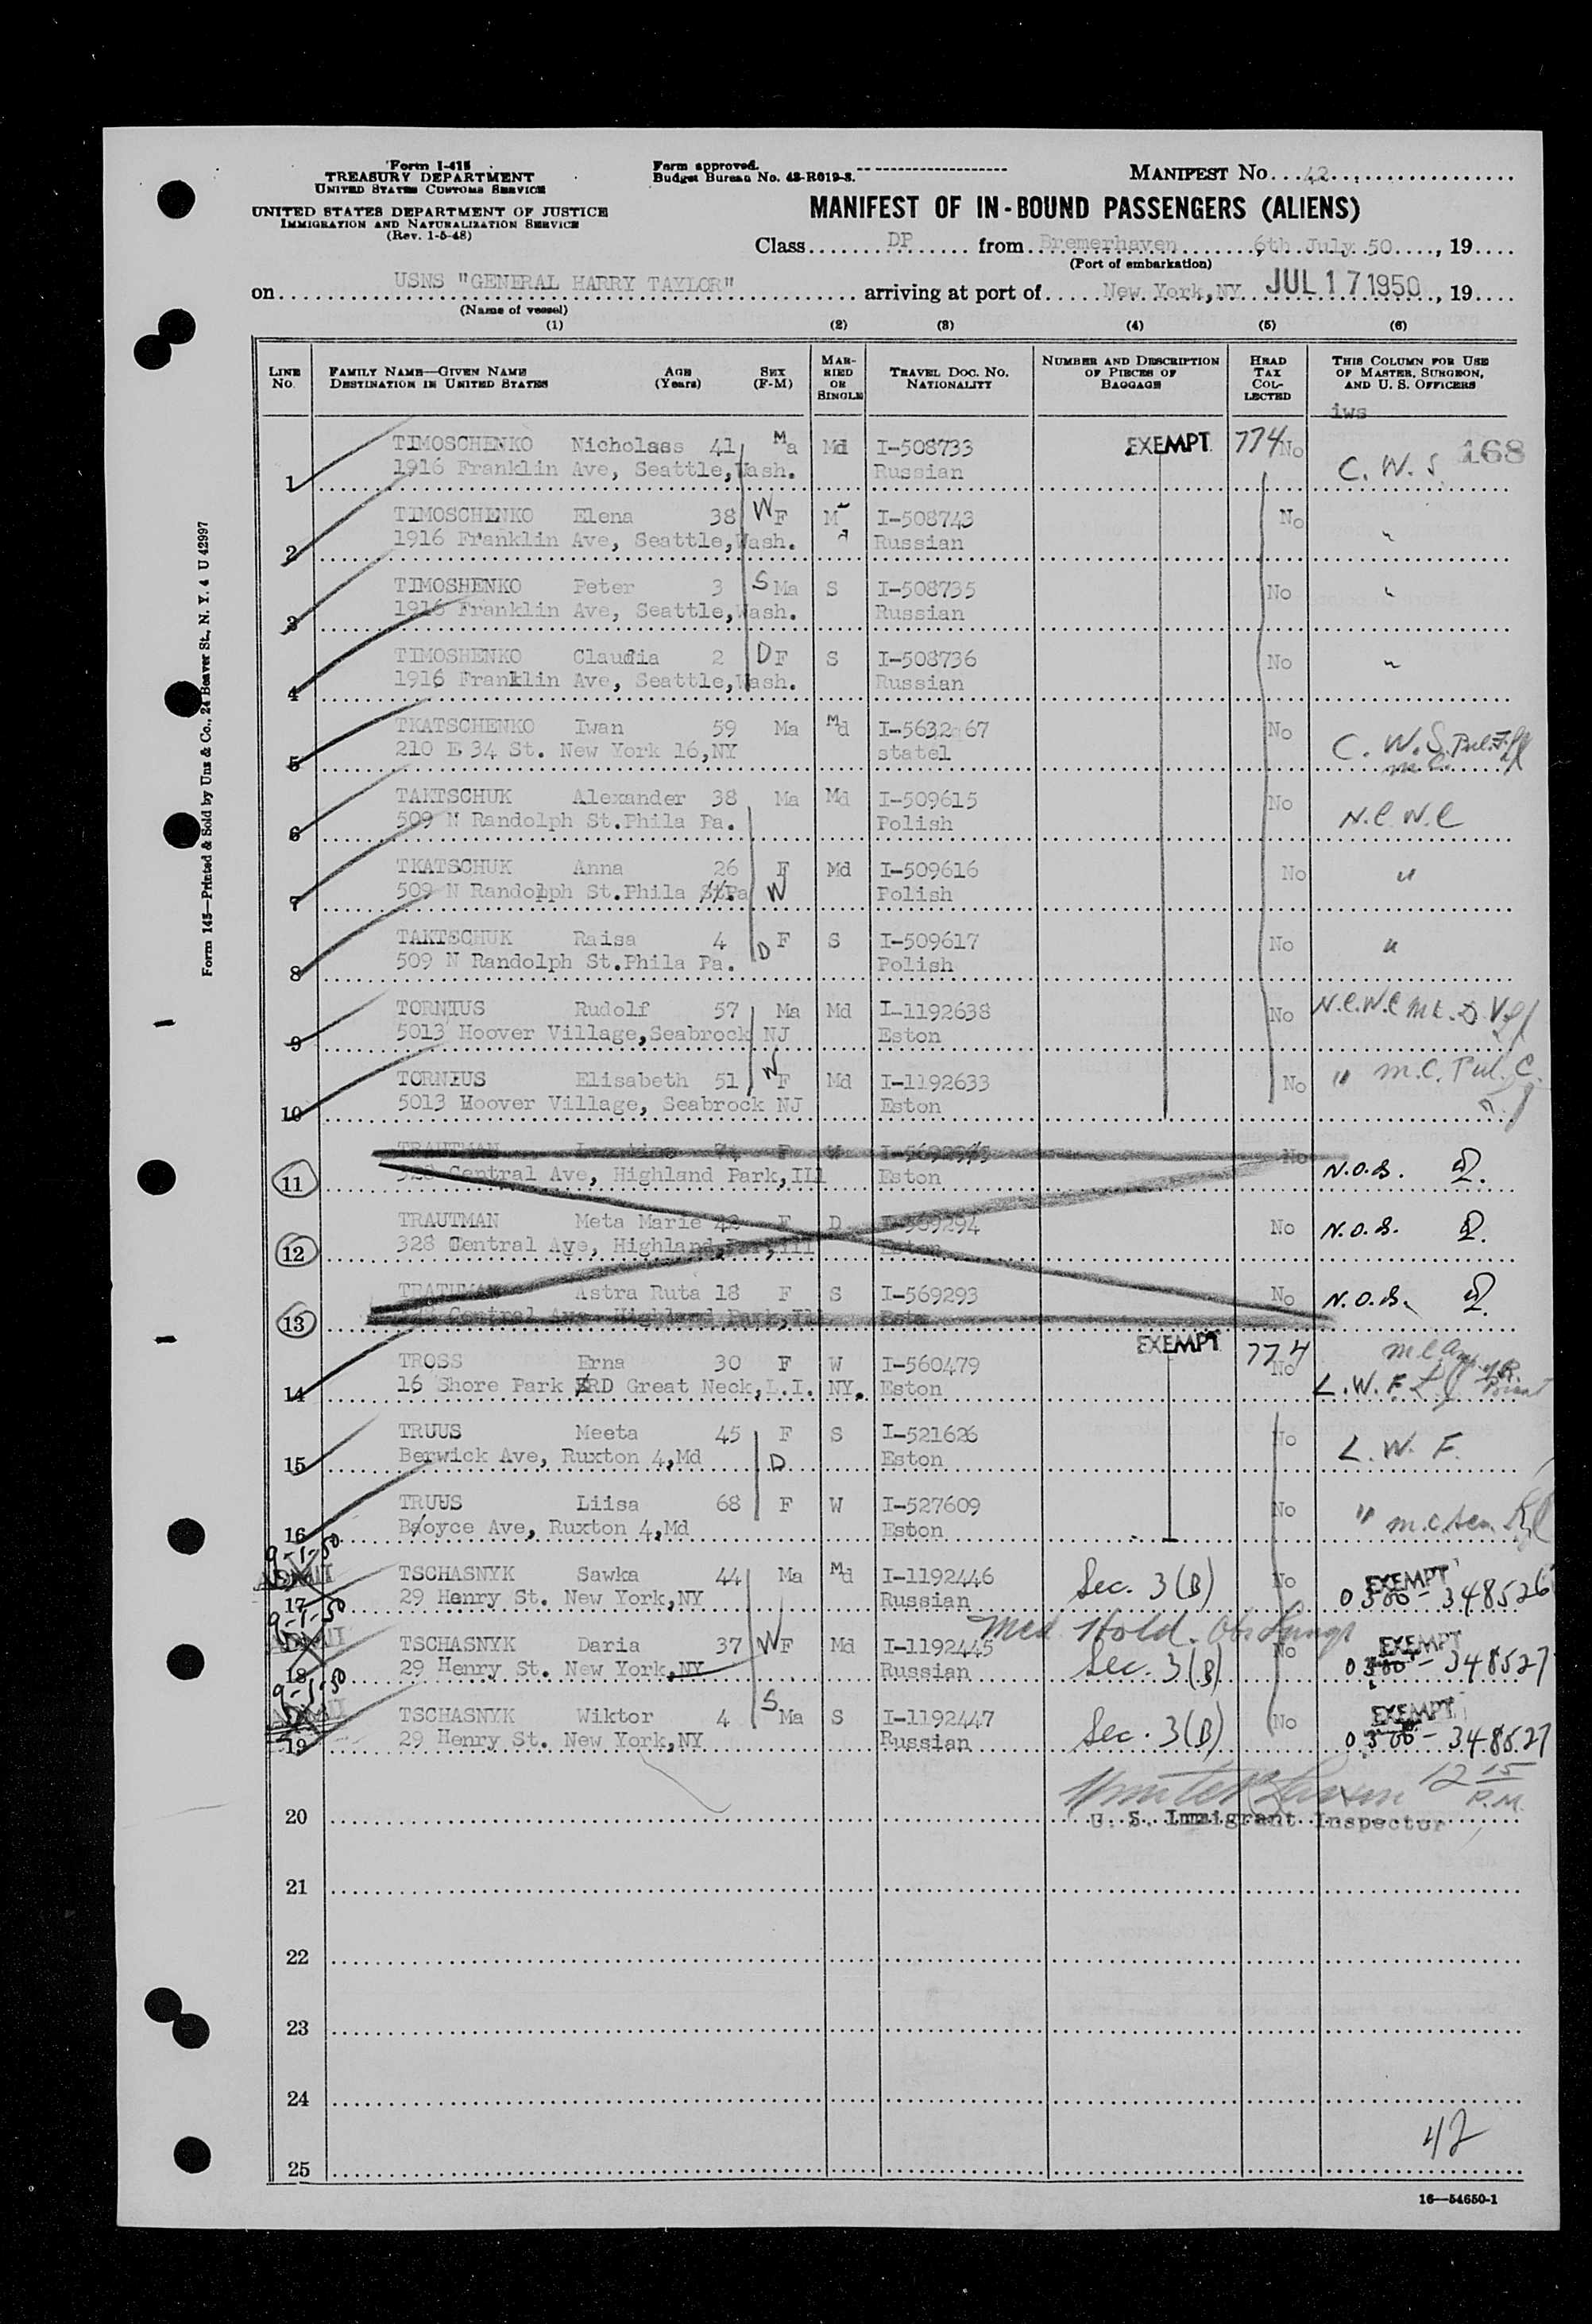 Form I-415
TREASURY DEPARTMENT
UNITED STATES CUSTOMS SERVICE
UNITED STATES DEPARTMENT OF JUSTICE
IMMIGRATION AND NATURALIZATION SERVICE
(Rev. 1-5-48)
Form approved.
Budget Bureau No. 43-R019-3.
MANIFEST No. 42
MANIFEST OF IN-BOUND PASSENGERS (ALIENS)
Class DP from Bremerhaven, 6th July 50, 19
(Port of embarkation)
on USNS "GENERAL HARRY TAYLOR" arriving at port of New York, NY JUL 17 1950, 19
(Name of vessel)
(1) (2) (3) (4) (5) (6)
LINE No. FAMILY NAME—GIVEN NAME DESTINATION IN UNITED STATES AGE (Years) SEX (F-M) MARRIED OR SINGLE TRAVEL DOC. No. NATIONALITY NUMBER AND DESCRIPTION OF PIECES OF BAGGAGE HEAD TAX COLLECTED THIS COLUMN FOR USE OF MASTER, SURGEON, AND U. S. OFFICERS
iws
TIMOSCHENKO Nicholass 41 Ma Md I-508733 EXEMPT 774 No 168
1 1916 Franklin Ave, Seattle, Wash. Russian C. W. S
TIMOSCHENKO Elena 38 W F M I-508743 No
2 1916 Franklin Ave, Seattle, Wash. Russian "
TIMOSHENKO Peter 3 S Ma S I-508735 No "
3 1916 Franklin Ave, Seattle, Wash. Russian
TIMOSHENKO Claudia 2 D F S I-508736 No "
4 1916 Franklin Ave, Seattle, Wash. Russian
TKATSCHENKO Iwan 59 Ma Md I-5632 67 No
5 210 E 34 St. New York 16, NY statel C. W. S.
TAKTSCHUK Alexander 38 Ma Md I-509615 No
6 509 N Randolph St. Phila Pa. Polish N.C.W.C
TKATSCHUK Anna 26 F Md I-509616 No "
7 509 N Randolph St. Phila Pa W Polish
TAKTSCHUK Raisa 4 D F S I-509617 No "
8 509 N Randolph St. Phila Pa. Polish
TORNIUS Rudolf 57 Ma Md I-1192638 No N.C.W.C
9 5013 Hoover Village, Seabrock NJ Eston
TORNIUS Elisabeth 51 W F Md I-1192633 No " m.c. Pul.
10 5013 Hoover Village, Seabrock NJ Eston
TRAUTMAN 74 F W No
11 328 Central Ave, Highland Park, Ill Eston N.O.B.
TRAUTMAN Meta Marie 42 F D I-569294 No N.O.B.
12 328 Central Ave, Highland Park, Ill Eston
Astra Ruta 18 F S I-569293 No N.O.B.
13 Central Ave Highland Park, Ill
EXEMPT 774
TROSS Erna 30 F W I-560479 No
14 16 Shore Park RD Great Neck, L.I. NY. Eston L.W.F.
TRUUS Meeta 45 F S I-521626 No
15 Berwick Ave, Ruxton 4, Md D Eston L. W. F.
TRUUS Liisa 68 F W I-527609 No "
16 Boyce Ave, Ruxton 4, Md Eston
9-1-50 ADMIT
TSCHASNYK Sawka 44 Ma Md I-1192446 Sec. 3(B) No EXEMPT
17 29 Henry St. New York, NY Russian 0300-348526
9-1-50 ADMIT
Med Hold.
TSCHASNYK Daria 37 W F Md I-1192445 No EXEMPT
18 29 Henry St. New York, NY Russian Sec. 3(B) 0300-348527
9-1-50 ADMIT
TSCHASNYK Wiktor 4 S Ma S I-1192447 No EXEMPT
19 29 Henry St. New York, NY Russian Sec. 3(B) 0300-348527
12 15 P.M.
20 U. S. Immigrant Inspector
21
22
23
24
42
25
16—54650-1
Form 145—Printed & Sold by Uns & Co., 24 Beaver St., N. Y. 4 U 42997